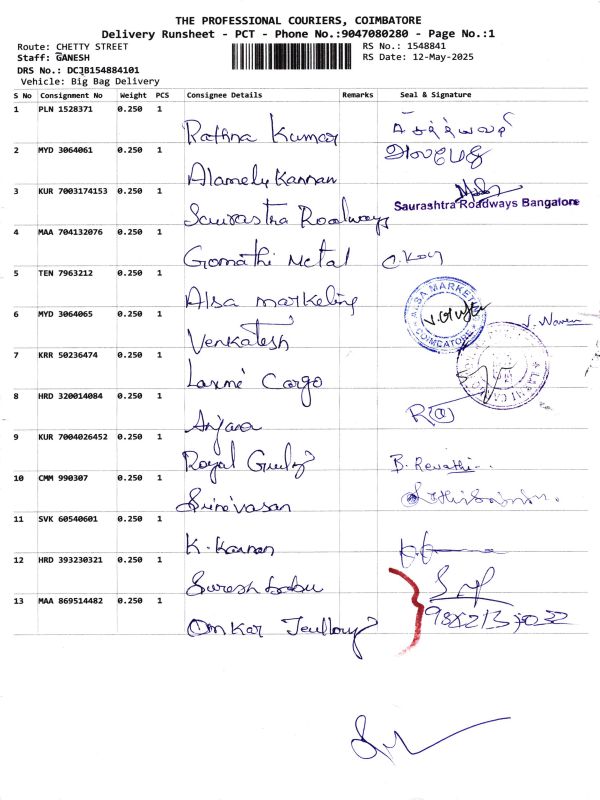 THE PROFESSIONAL COURIERS, COIMBATORE
Delivery Runsheet - PCT - Phone No.:9047080280 - Page No.:1
Route: CHETTY STREET RS No.: 1548841
Staff: GANESH RS Date: 12-May-2025
DRS No.: DCJB154884101
Vehicle: Big Bag Delivery
S No Consignment No Weight PCS Consignee Details Remarks Seal & Signature
1 PLN 1528371 0.250 1
Rathna Kumar
2 MYD 3064061 0.250 1
Alamelu Kannan
3 KUR 7003174153 0.250 1
Saurastra Roadways Saurashtra Roadways Bangalore
4 MAA 704132076 0.250 1
Gomathi Metal
5 TEN 7963212 0.250 1
Alsa marketing ALSA MARKETING COIMBATORE
6 MYD 3064065 0.250 1
Venkatesh
7 KRR 50236474 0.250 1
Laxmi Cargo
8 HRD 320014084 0.250 1
Anjana
9 KUR 7004026452 0.250 1
Royal B. Revathi
10 CMM 990307 0.250 1
Srinevasan
11 SVK 60540601 0.250 1
K. Kannan
12 HRD 393230321 0.250 1
Suresh babu
13 MAA 869514482 0.250 1
Omkar